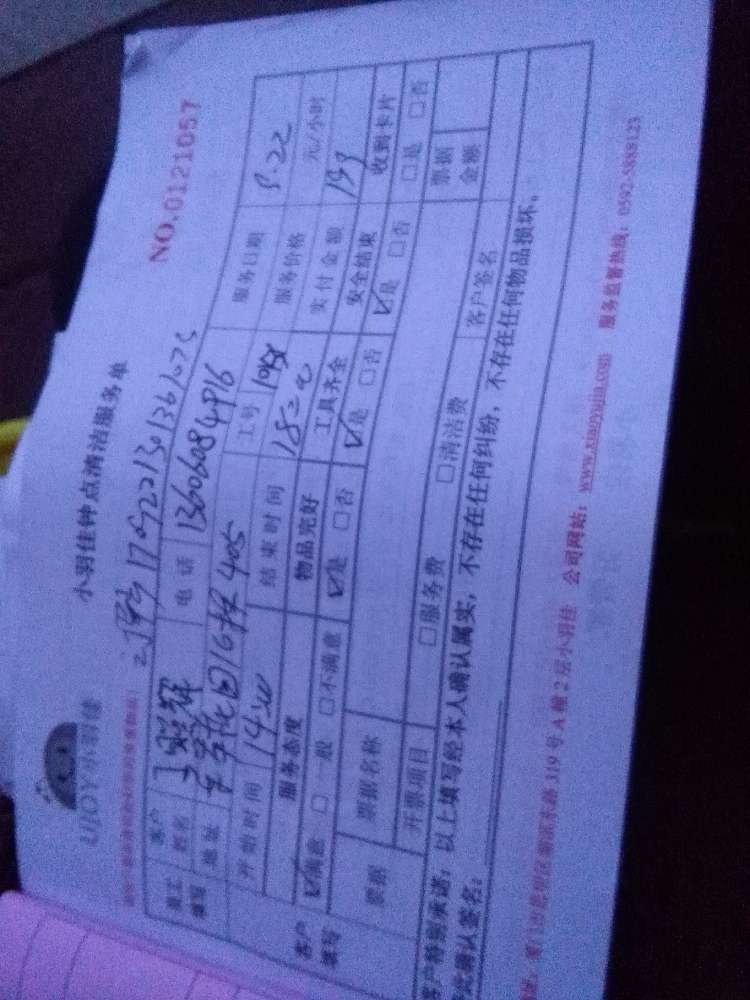 UJOY小羽佳
小羽佳钟点清洁服务单
NO.0121057
员工填写
客户姓名
电话 13606084916
服务日期 9.22
地址 花园16楼405
工号
服务价格 元/小时
开始时间 14:00
结束时间 18:00
实付金额 139
客户填写
服务态度 物品完好 工具齐全 安全结束 收到卡片
☑满意 □一般 □不满意 ☑是 □否 ☑是 □否 ☑是 □否 □是 □否
票据
票据名称
票据金额
开票项目 □服务费 □清洁费
客户签名
客户特别承诺:以上填写经本人确认属实,不存在任何纠纷,不存在任何物品损坏,
特此确认签名:
319号A幢2层小羽佳 公司网站:www.xiaoyujia.com 服务监督热线:0592-5888123